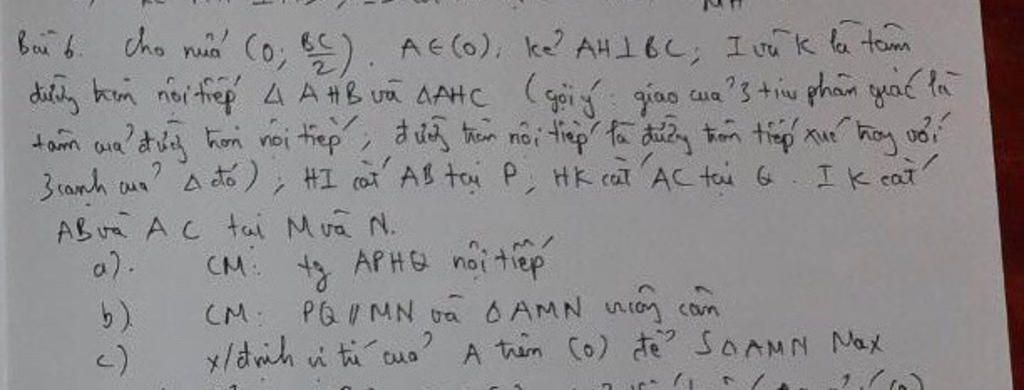 MH
Bài 6. Cho nửa (O; BC/2). A ∈ (O), kẻ AH ⊥ BC; I và K là tâm
đường tròn nội tiếp Δ AHB và ΔAHC (gợi ý: giao của 3 tia phân giác là
tâm của đường tròn nội tiếp; đường tròn nội tiếp là đường tròn tiếp xúc với
3 cạnh của Δ đó); HI cắt AB tại P; HK cắt AC tại Q. IK cắt
AB và AC tại M và N.
a). CM: tg APHQ nội tiếp
b) CM: PQ // MN và Δ AMN vuông cân
c) x/định vị trí của A trên (O) để SΔAMN Max